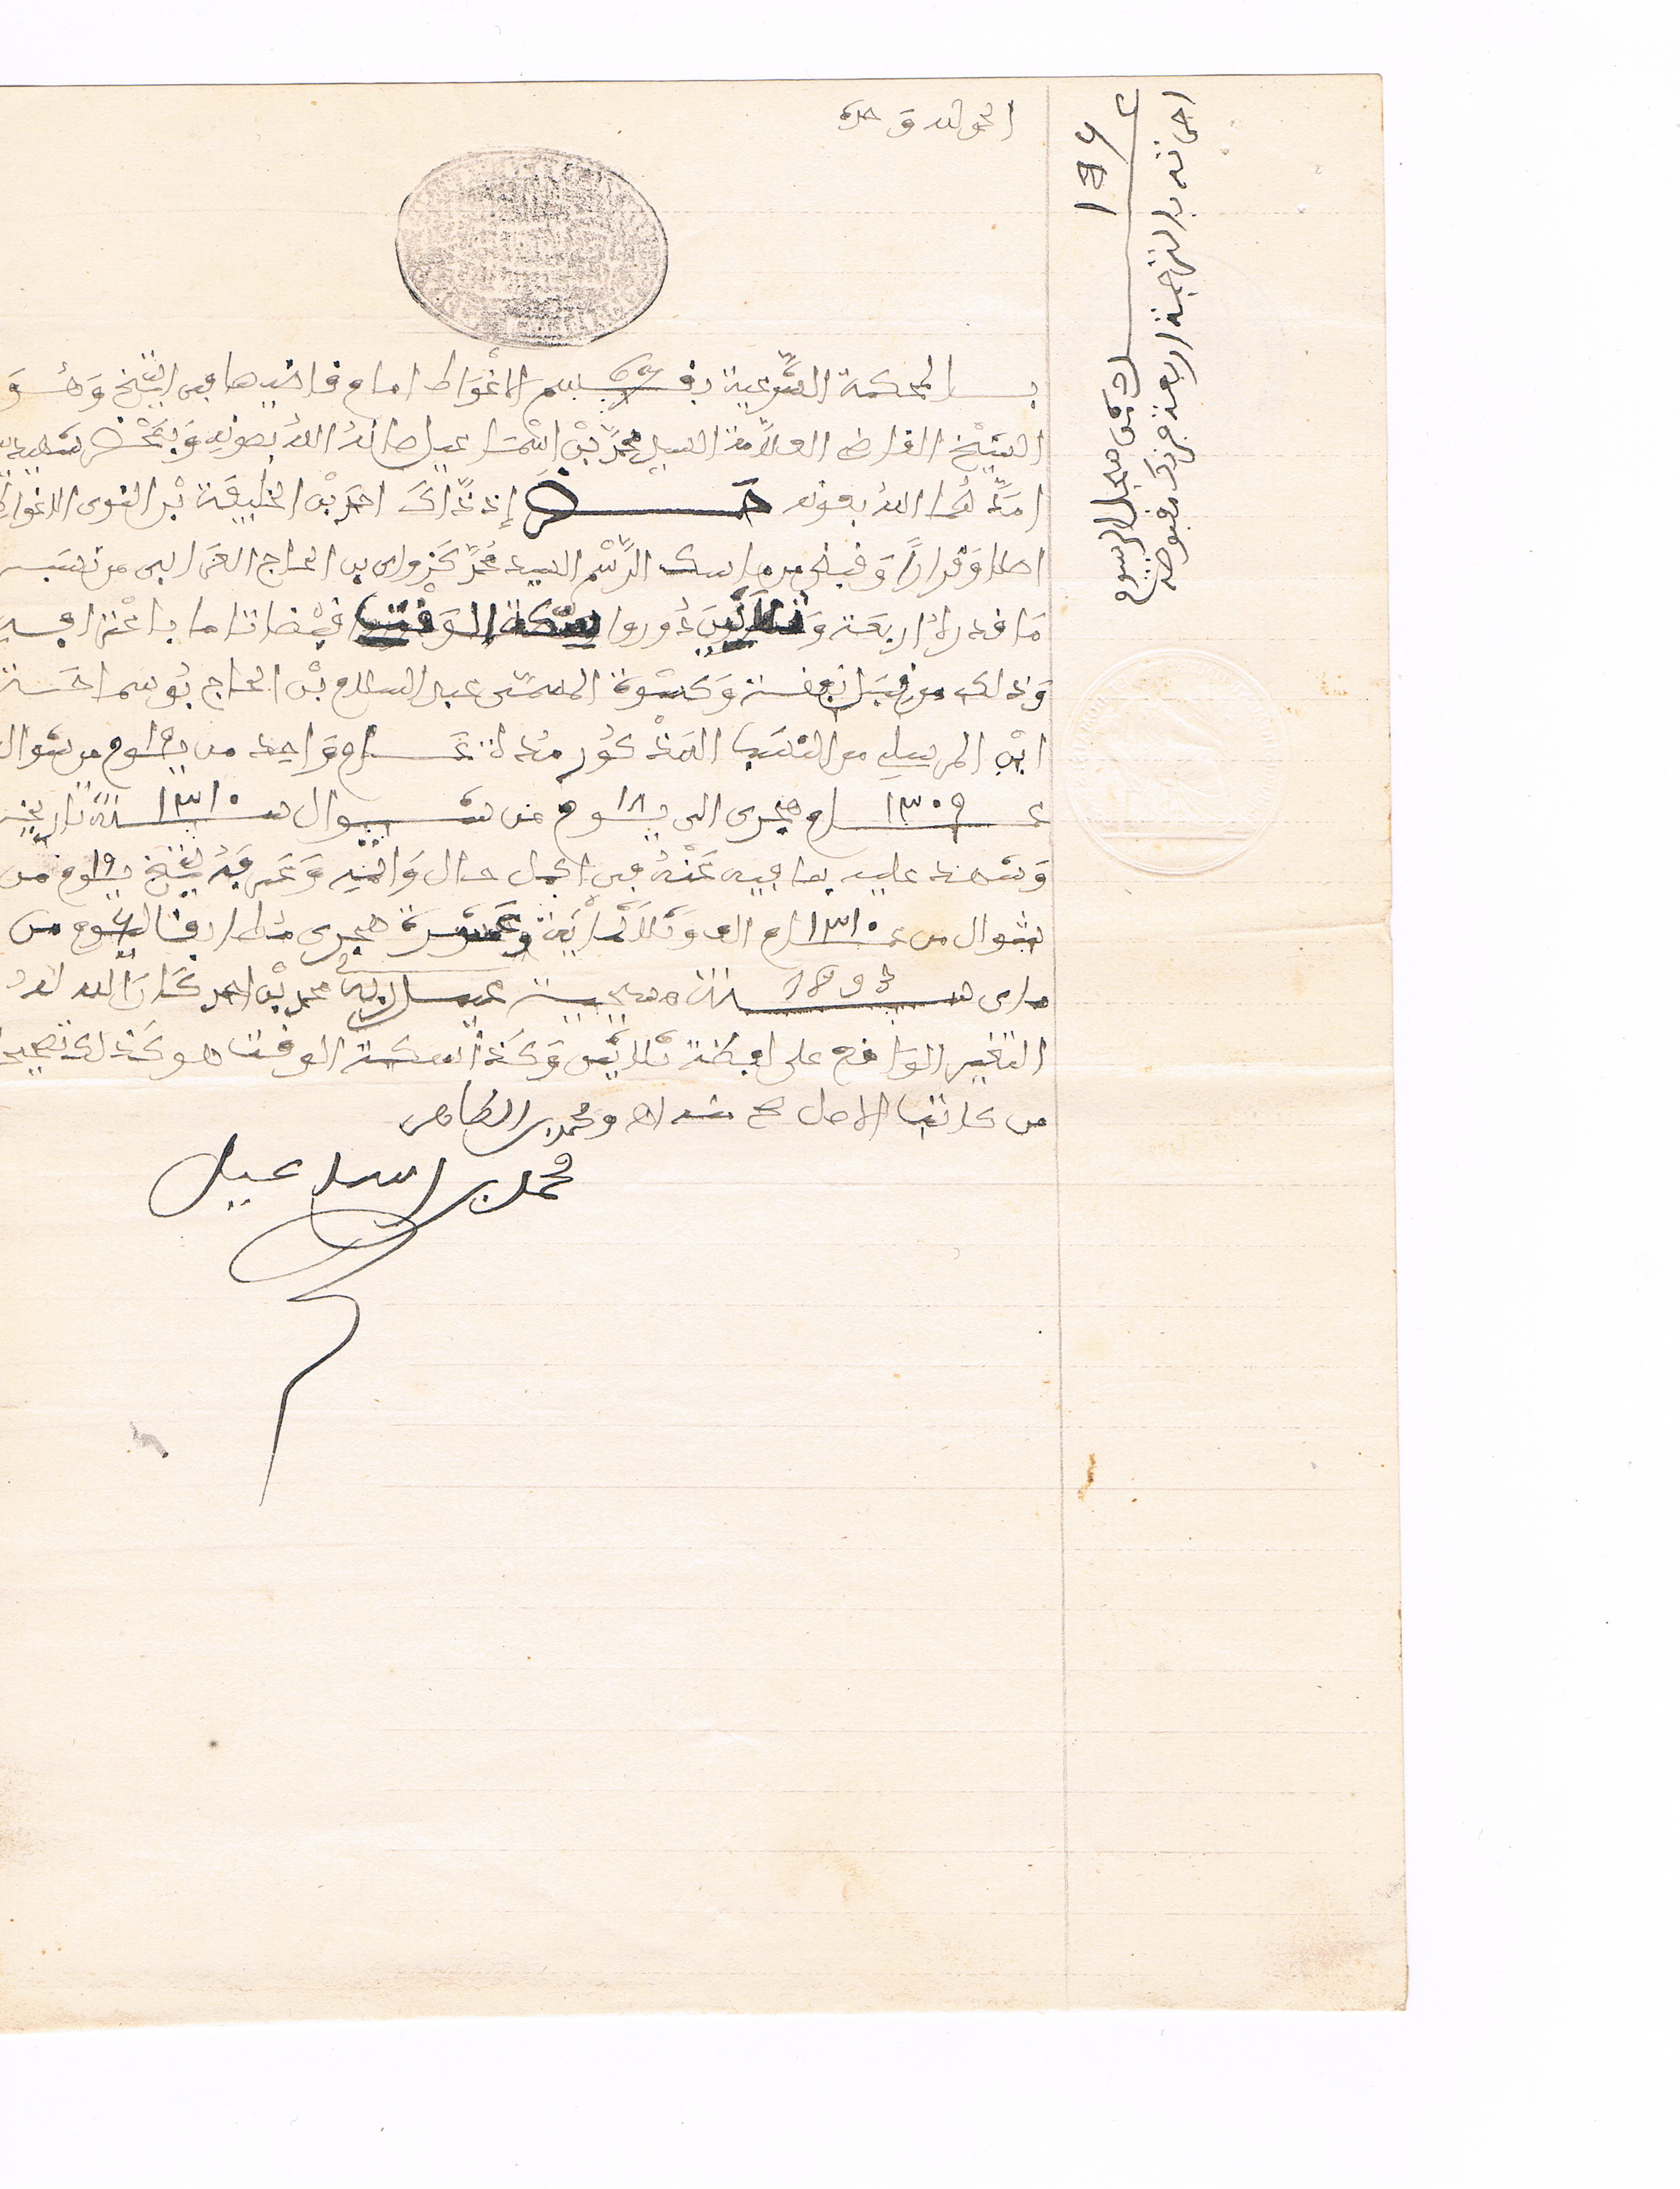 الحمد لله وحده
بالمحكمة الشرعية بقسم الاغواط امام قاضيها في التاريخ وهو
الشيخ القاضي العلامة السيد محمد بن اسماعيل صانه الله بصونه وبمحضر شهيديه
امدهما الله بعونه حضر إذ ذاك احمد بن الخليفة بن القوي الاغواطي
اصلا وقرارا وقبض من ماسك الرسم السيد محمد كزواي بن الحاج العرابي من نصيب
ما قدره اربعة وثلاثين دوروا بسكة الوقت قبضا تاما باعترافه
وذلك من قبل نفقة وكسوة المسمى عبد السلام بن الحاج بوسماحة
ابن المرسلي من النسب المذكور مدة عام واحد من يوم من شوال
عام ١٣٠٩ هجري الى يوم من شوال سنة ١٣١٠ تاريخه
وشهد عليه بما فيه عنه في اكمل حال واتمه وعرفه بتاريخ يوم من
شوال من عام ١٣١٠ الف وثلاثمائة وعشرة هجري مطابقا ليوم من
ماي سنة 1893 مسيحية عبد ربه محمد بن احمد كان الله له
التغيير الواقع على لفظة ثلاثين وكذا بسكة الوقت هو كذلك تصحيحا
من كاتب الاصل صح منه اهـ ومحمد بن الطاهر
محمد بن اسماعيل
١٣٤
من سجل الرسوم
اجرته بالترجمة اربعة فرنك مقبوضة